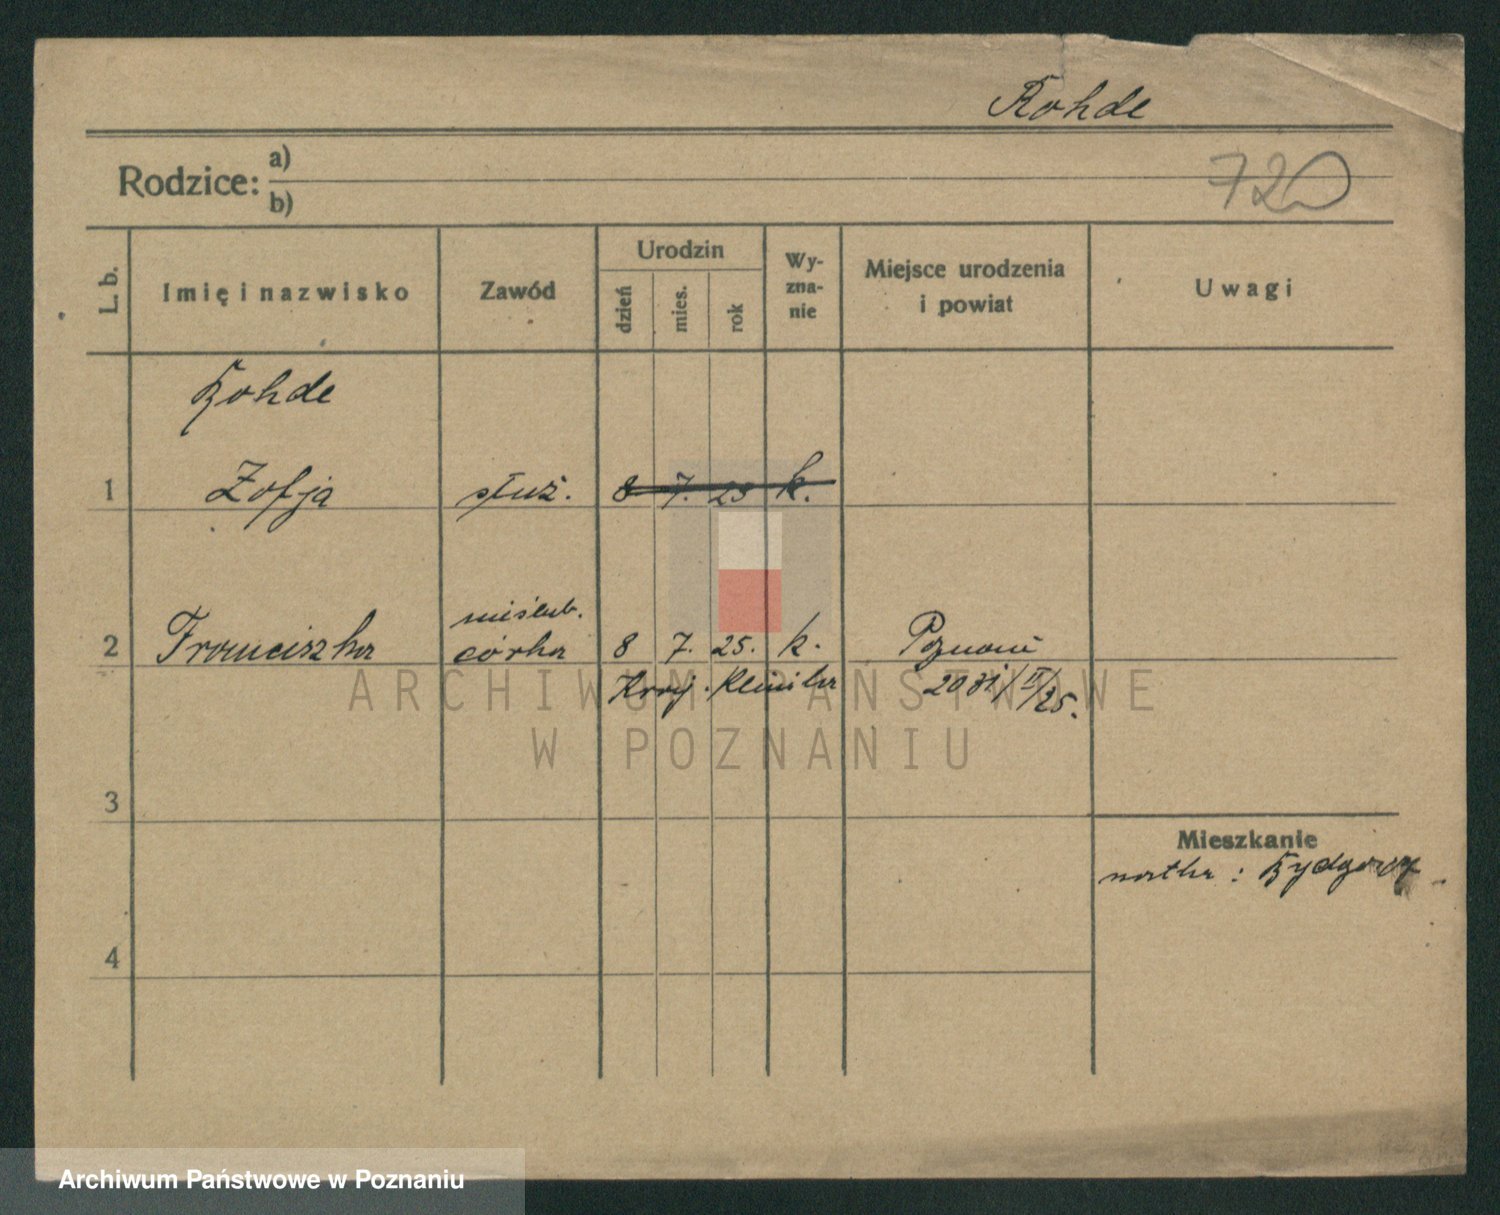 Rohde
Rodzice: a)
b)
720
L. b.
Imię i nazwisko
Zawód
Urodzin
dzień
mies.
rok
Wy-
zna-
nie
Miejsce urodzenia
i powiat
Uwagi
Rohde
1 Zofja służ. 8 7. 25 k.
nieślub.
2 Franciszka córka 8 7. 25. k. Poznań
Kraj. Klinika 2031/II/25.
3
Mieszkanie
matka: Bydgoszcz
4
ARCHIWUM PAŃSTWOWE
W POZNANIU
Archiwum Państwowe w Poznaniu